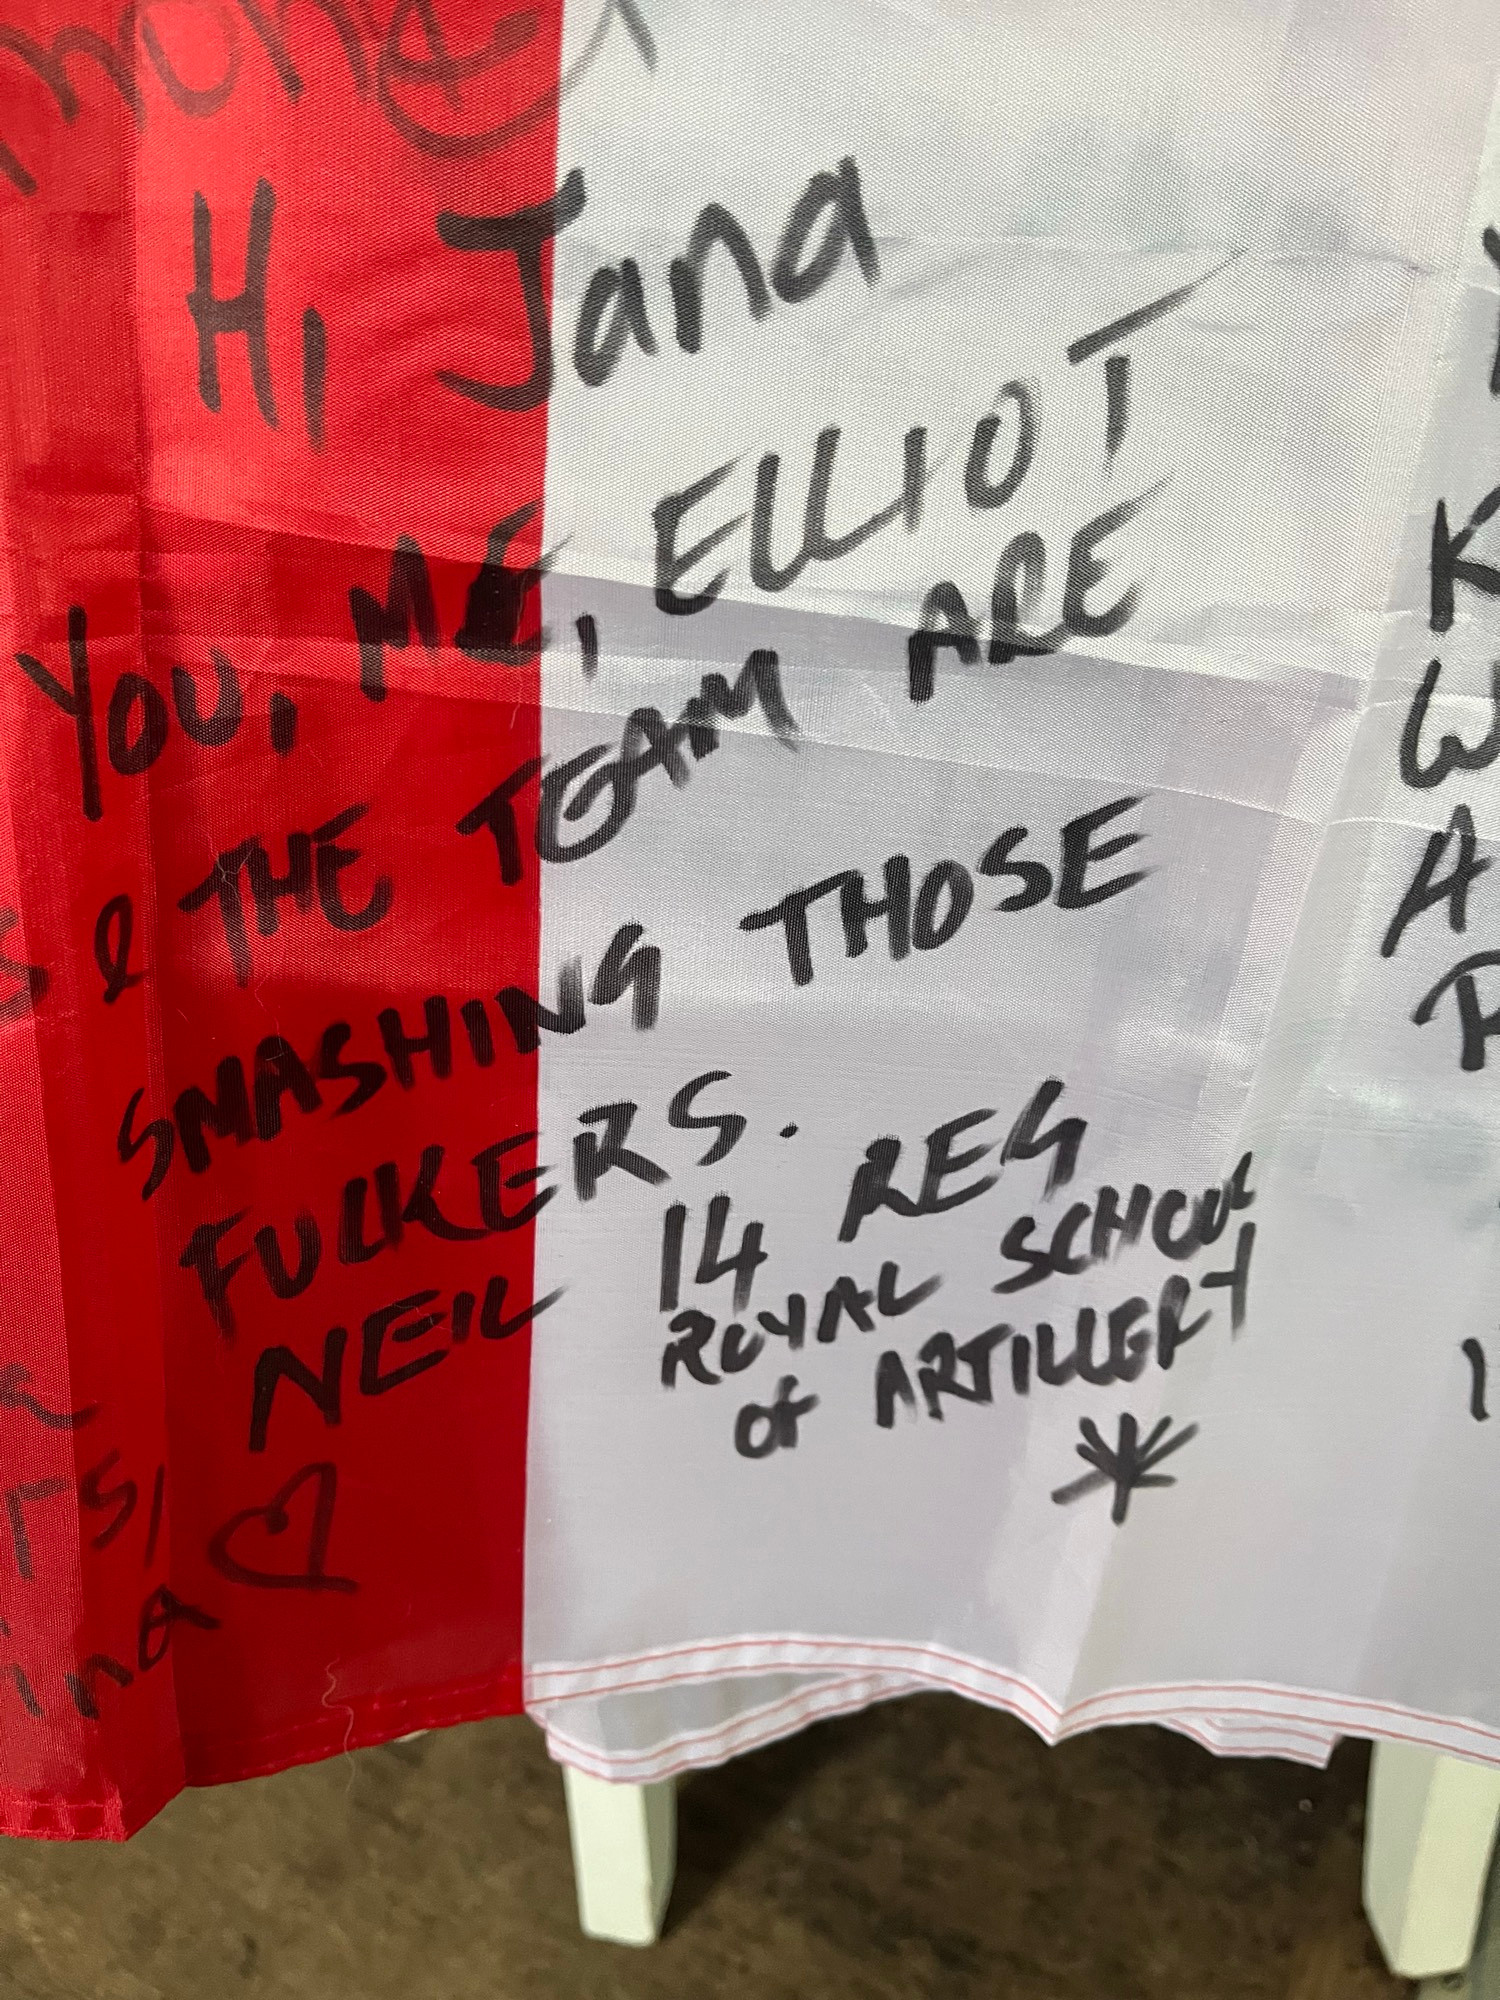 Hi Jana
YOU, ME, ELLIOT
& THE TEAM ARE
SMASHING THOSE
FUCKERS.
NEIL
14 REG
ROYAL SCHOOL
of ARTILLERY